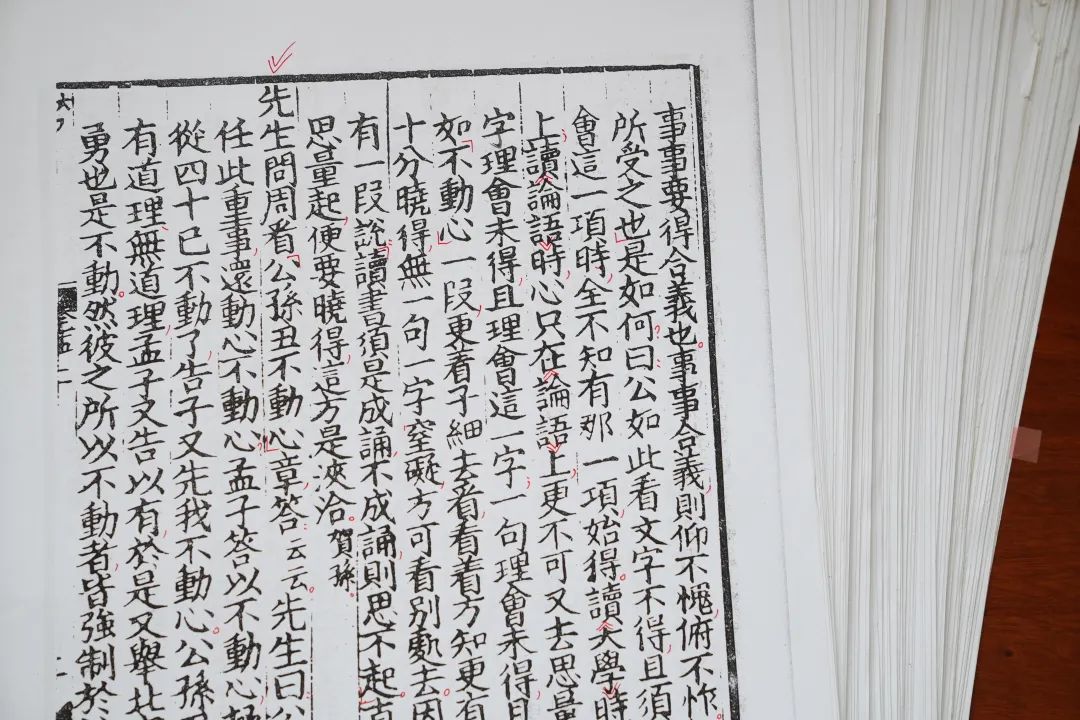 事事要得合義也。事事合義，則仰不愧，俯不怍
所受之也是如何曰公如此看文字不得且須
會這一項時，全不知有那一項，始得。讀大學時
上；讀論語時，心只在論語上，更不可又去思量
字理會未得，且理會這一字；一句理會未得
如不動心一段，更着子細去看，看着方知更有
十分曉得，無一句一字窒礙，方可看別處去。因
有一段說：讀書須是成誦，不成誦，則思不起
思量起，便要曉得，這方是浹洽。賀孫。
先生問周看公孫丑不動心章，答云云。先生曰
任此重事，還動心不動心孟子答以不動心
從四十已不動了，告子又先我不動心。公孫
有道理，無道理，孟子又告以有，於是又舉北
勇也是不動。然彼之所以不動者，皆強制於